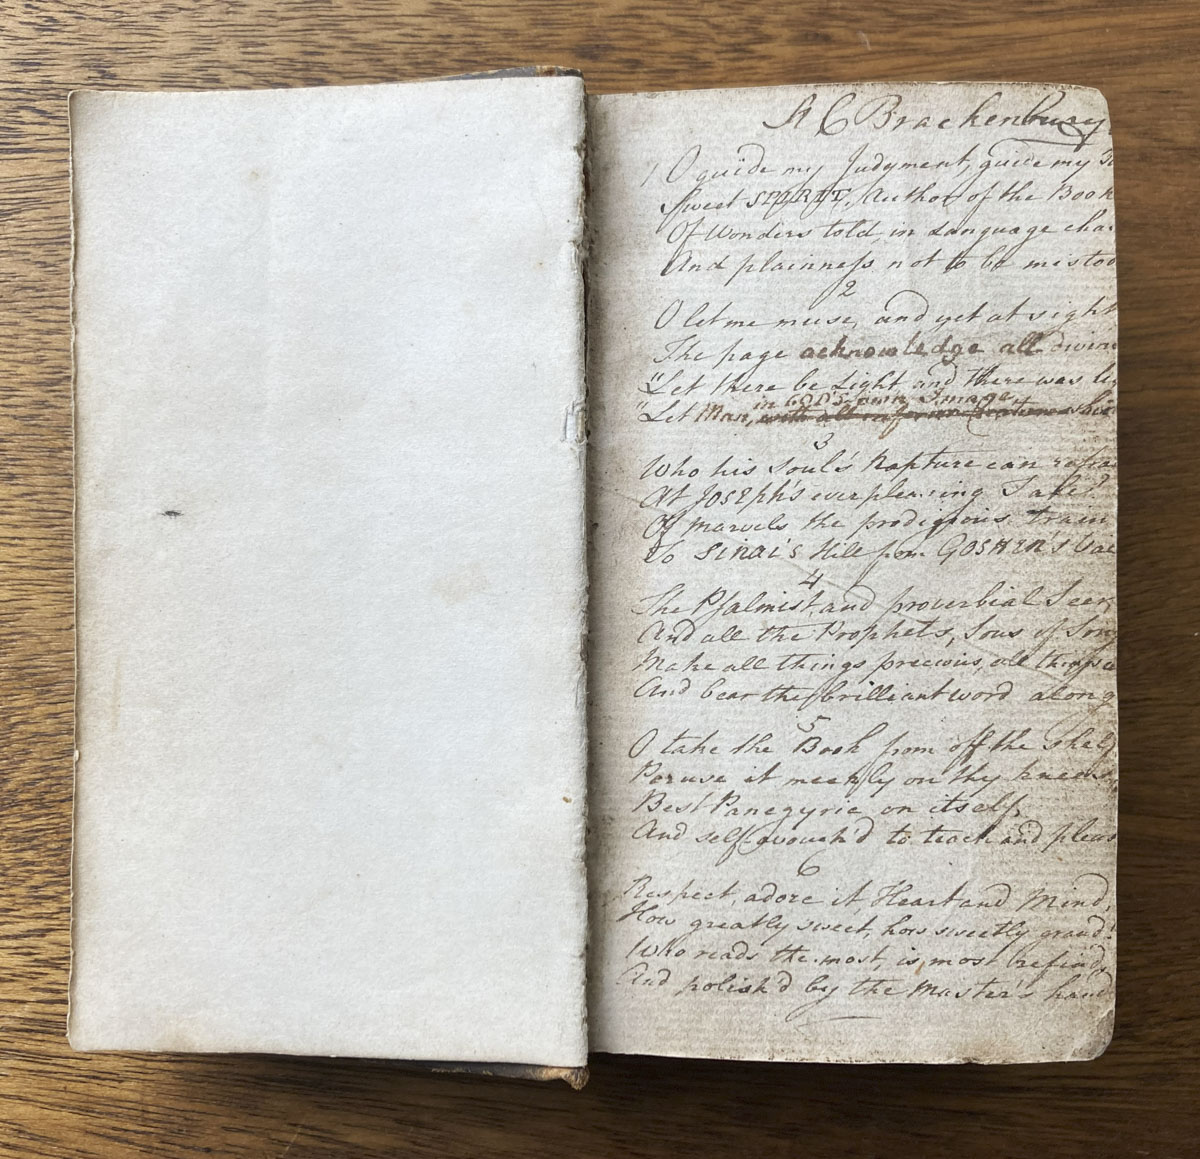 A C Brackenbury
1 O guide my Judgment, guide my
Sweet SPIRIT, Author of the Book
Of Wonders told in Language cha
And plainness not to be mistoo
2
O let me muse, and yet at sight
The page acknowledge all divine
"Let there be Light and there was lig
in GOD'S own Image
"Let Man, with all inferior Creatures
3
Who his Soul's Rapture can refra
At JOSEPH'S ever pleasing Tale?
Of marvels the prodigious train
To SINAI'S Hill from GOSHEN'S Va
4
The Psalmist and proverbial Seer
And all the Prophets, Sons of Song
Make all things precious, all things
And bear the brilliant word along
5
O take the Book from off the shelf
Peruse it meekly on thy knees,
Best Panegyric on itself,
And self-avouch'd to teach and pleas
6
Respect, adore it, Heart and Mind,
How greatly sweet, how sweetly grand!
Who reads the most, is most refind,
And polish'd by the Master's hand